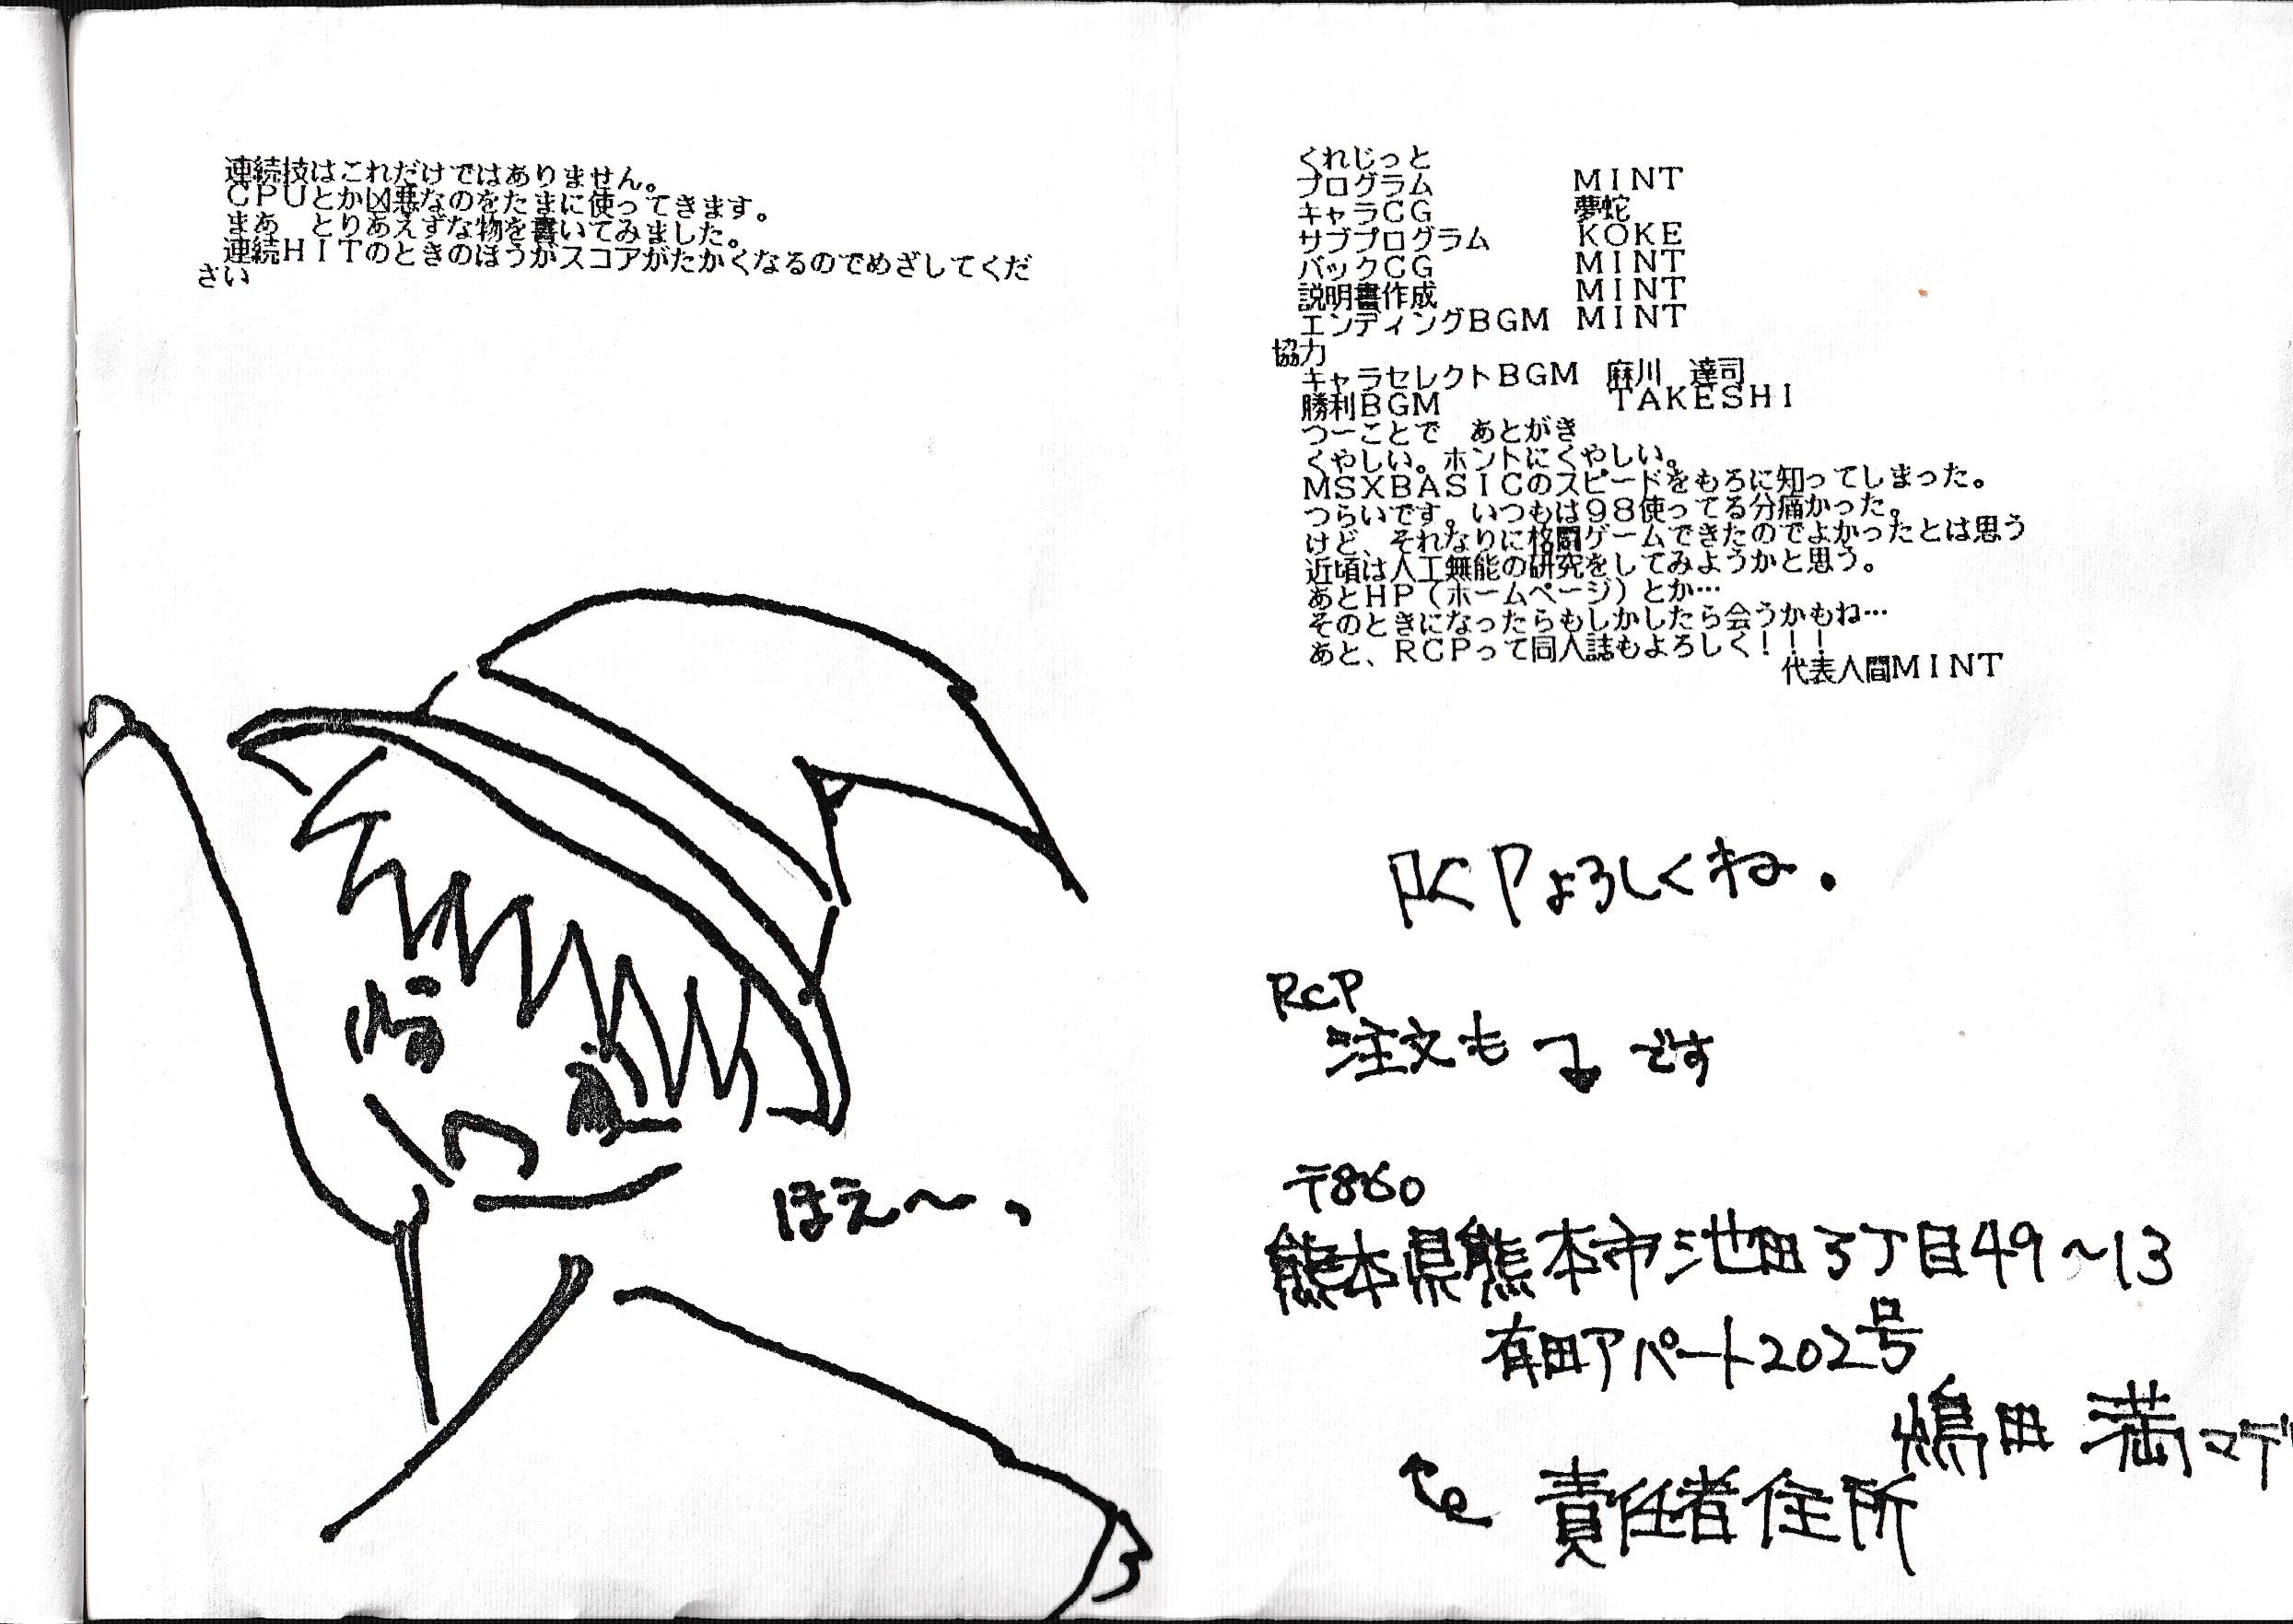 連続技はこれだけではありません。
CPUとか凶悪なのをたまに使ってきます。
まあ　とりあえずな物を書いてみました。
連続HITのときのほうがスコアがたかくなるのでめざしてくだ
さい
ほえ〜、
くれじっと
プログラム　MINT
キャラCG　夢蛇
サブプログラム　KOKE
バックCG　MINT
説明書作成　MINT
エンディングBGM　MINT
協力
キャラセレクトBGM　麻川　達司
勝利BGM　TAKESHI
つーことで　あとがき
くやしい。ホントにくやしい。
MSXBASICのスピードをもろに知ってしまった。
つらいです。いつもは98使ってる分痛かった。
けど、それなりに格闘ゲームできたのでよかったとは思う
近頃は人工無能の研究をしてみようかと思う。
あとHP（ホームページ）とか…
そのときになったらもしかしたら会うかもね…
あと、RCPって同人誌もよろしく！！！
代表人間MINT
RCPよろしくね.
RCP
注文も です
〒860
熊本県熊本市池田3丁目49〜13
有田アパート202号
嶋田 満マデ
責任者住所